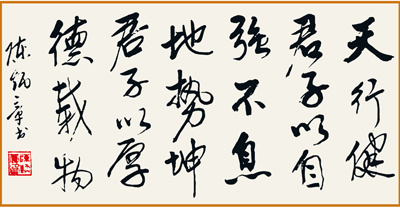 天行健
君子以自
強不息
地勢坤
君子以厚
德載物
陈炳章书